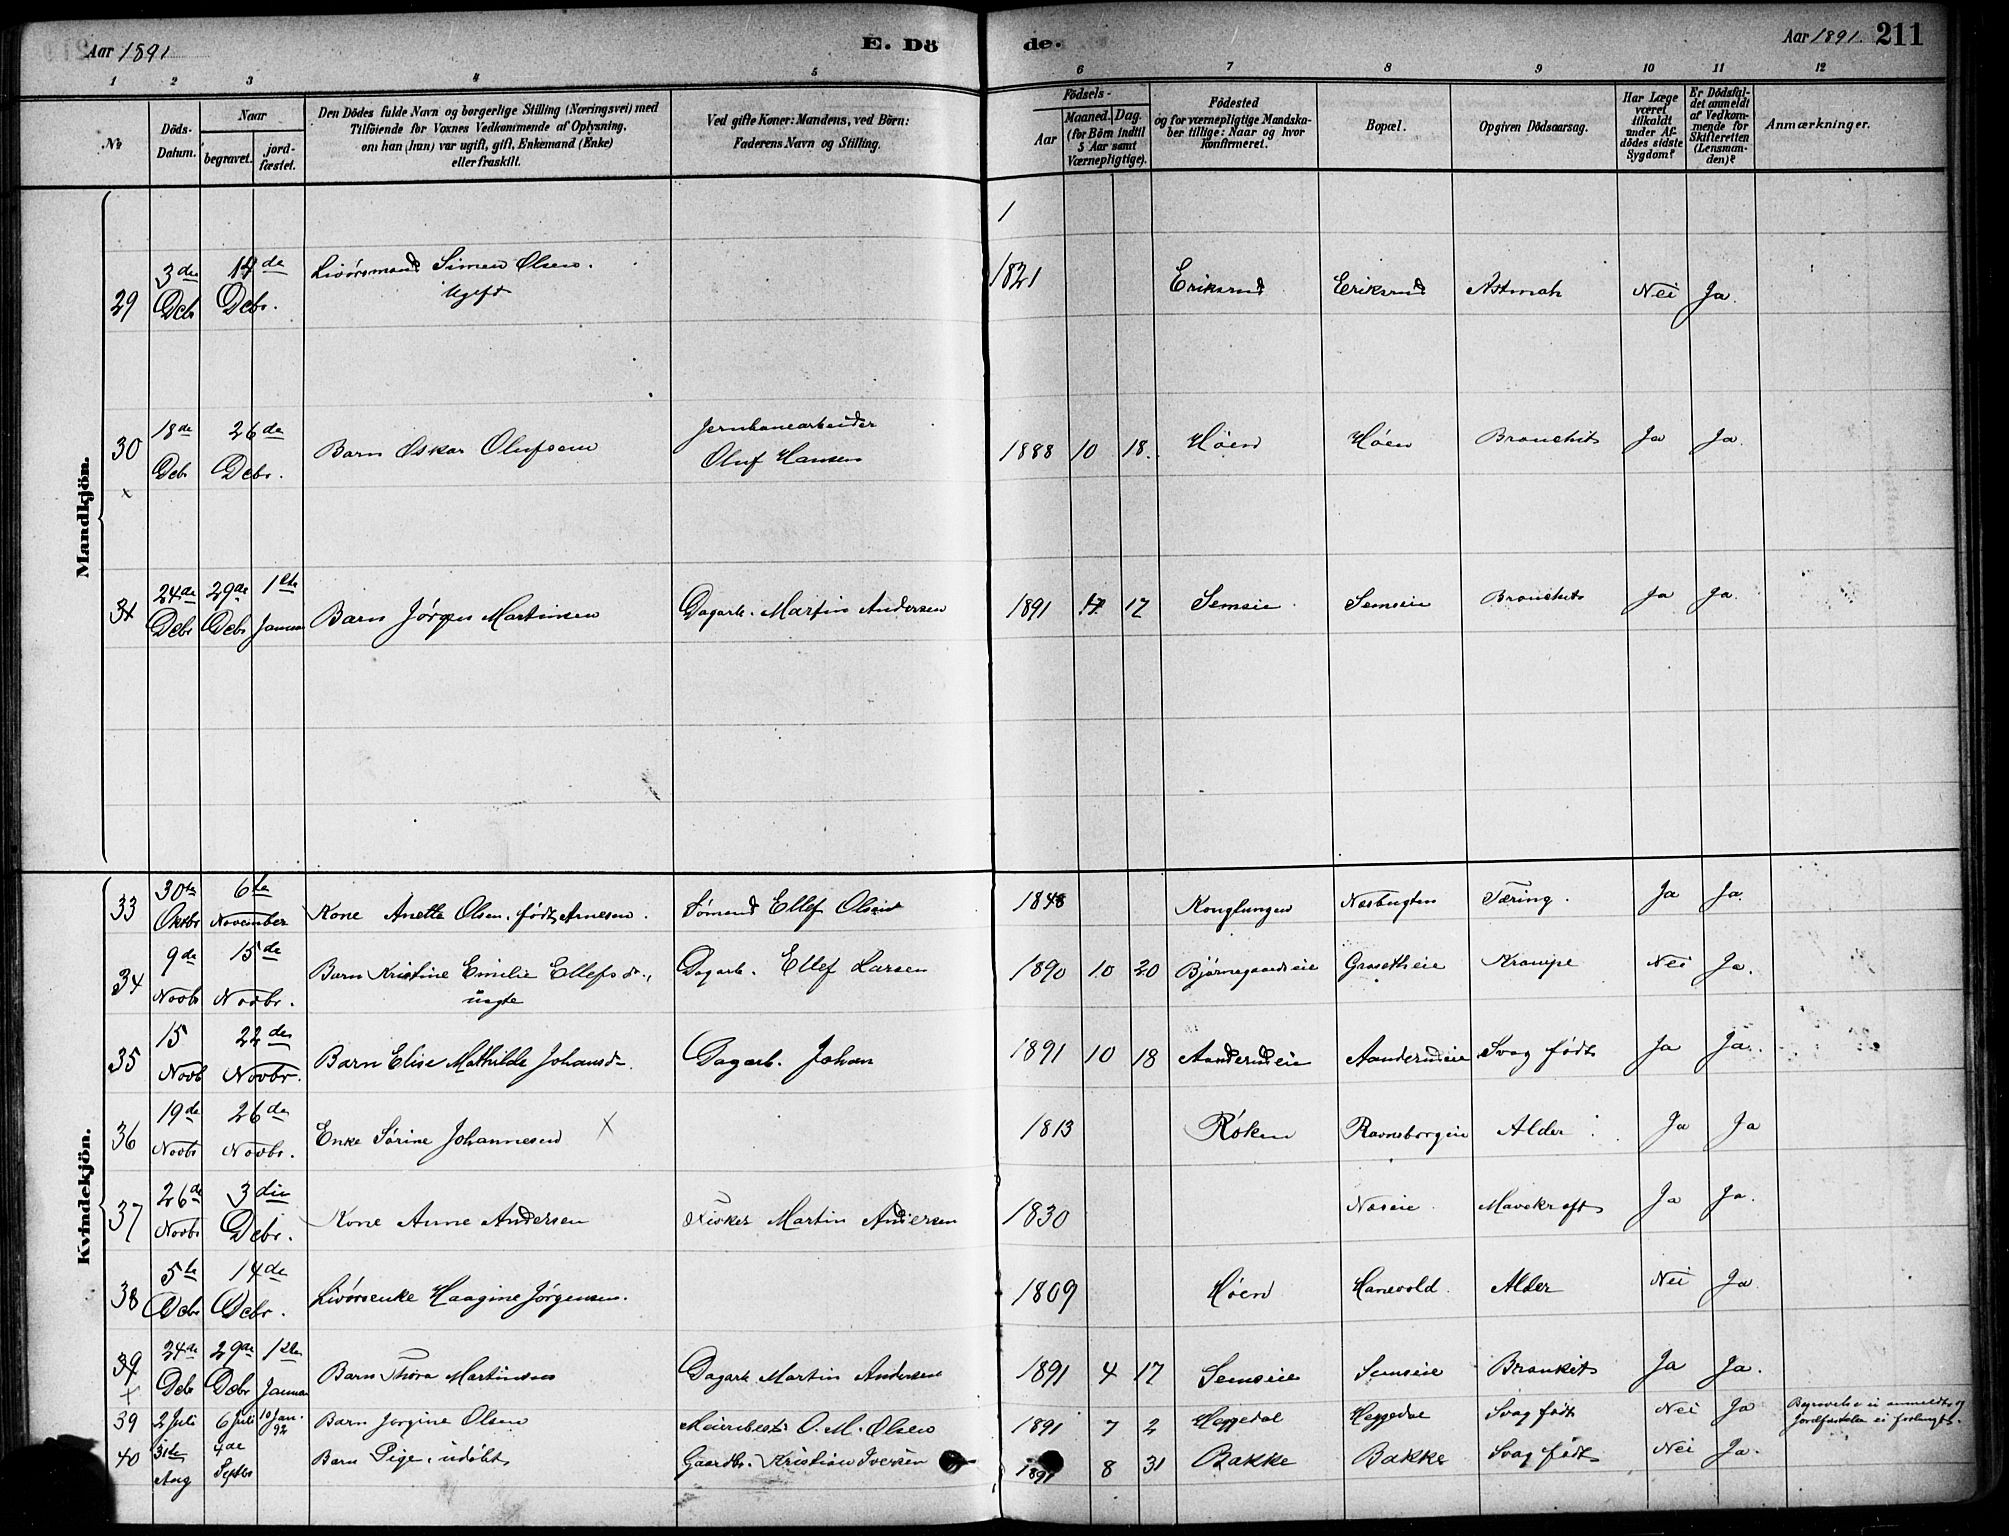 Aar 1891
E. Dö
de.
Aar 1891. 211
1 2 3 4 5 6 7 8 9 10 11 12
No
Döds-
Datum.
Naar
begravet.
jord-
fæstet.
Den Dödes fulde Navn og borgerlige Stilling (Næringsvei) med
Tilföiende for Voxnes Vedkommende af Oplysning,
om han (hun) var ugift, gift, Enkemand (Enke)
eller fraskilt.
Ved gifte Koner: Mandens, ved Börn:
Faderens Navn og Stilling.
Födsels-
Aar
Maaned. Dag.
(for Börn indtil
5 Aar samt
Værnepligtige).
Födested
og for værnepligtige Mandska-
ber tillige: Naar og hvor
konfirmeret.
Bopæl.
Opgiven Dödsaarsag.
Har Læge
været
tilkaldt
under Af-
dödes sidste
Sygdom?
Er Dödsfal-
det anmeldt
af Vedkom-
mende for
Skifteretten
(Lensman-
den)?
Anmærkninger.
Mandkjön.
1
29 3die Debr 14de Debr. Livörsmand Simen Olsen. 1821 Eriksrud Eriksrud Astmah Nei Ja.
Ugift
30 18de Debr 26de Debr. Barn Oskar Olufsen Jernbanearbeider
Oluf Hansen 1888 10 18. Höen Höen Bronchit Ja Ja.
x
31 24de Debr 29de Debr 1ste Januar Barn Jörgen Martinsen Dagarb. Martin Andersen 1891 17 Semseie Semseie Bronchit Ja Ja.
Kvindekjön.
33 30te Oktbr 6te November Kone Anette Olsen, födt Arnesen. Sömand Ellef Olsen 1848 Konglungen Næsbugten Tæring. Ja Ja.
34 9de Novbr 15de Novbr. Barn Kristine Emilie Ellefsdr., Dagarb. Ellef Larsen 1890 10 20 Bjørnegaardseie Krampe Nei Ja.
uægte
35 15 Novb 22de Novbr. Barn Elise Mathilde Johansdr. Dagarb. Johan 1891 10 18 Aanderudeie Aanderudeie Svag födt Ja Ja.
36 19de Novbr 26de Novbr. Enke Sörine Johannesen x 1813 Röken Ravnsborgeie Alder. Ja Ja
37 26de Novbr 3die Debr. Kone Anne Andersen Fisker Martin Andersen 1830 Næseie. Mavekræft Ja Ja.
38 5te Debr 14de Debr. Livörsenke Haagine Jörgensen. 1809 Höen Hanevold. Alder Nei Ja
39 24de Debr 29de Debr 1ste Januar Barn Thora Martinsen Dagarb. Martin Andersen 1891 4 17 Semseie Semseie Bronkit Ja Ja.
x
39 2 Juli 6 Juli 10 Jan. 92 Barn Jorgine Olsen O. M. Olsen 1891 7 2 Heggedal Heggedal Svag födt Nei Ja Begravelse ei anmeldt og
Jordfæstelse ei forlangt.
40 31te Aug 4de Septbr Barn Pige, udöbt Gaardbr. Kristian Iversen 1891 8 31 Bakke Bakke Svag födt Nei Ja.